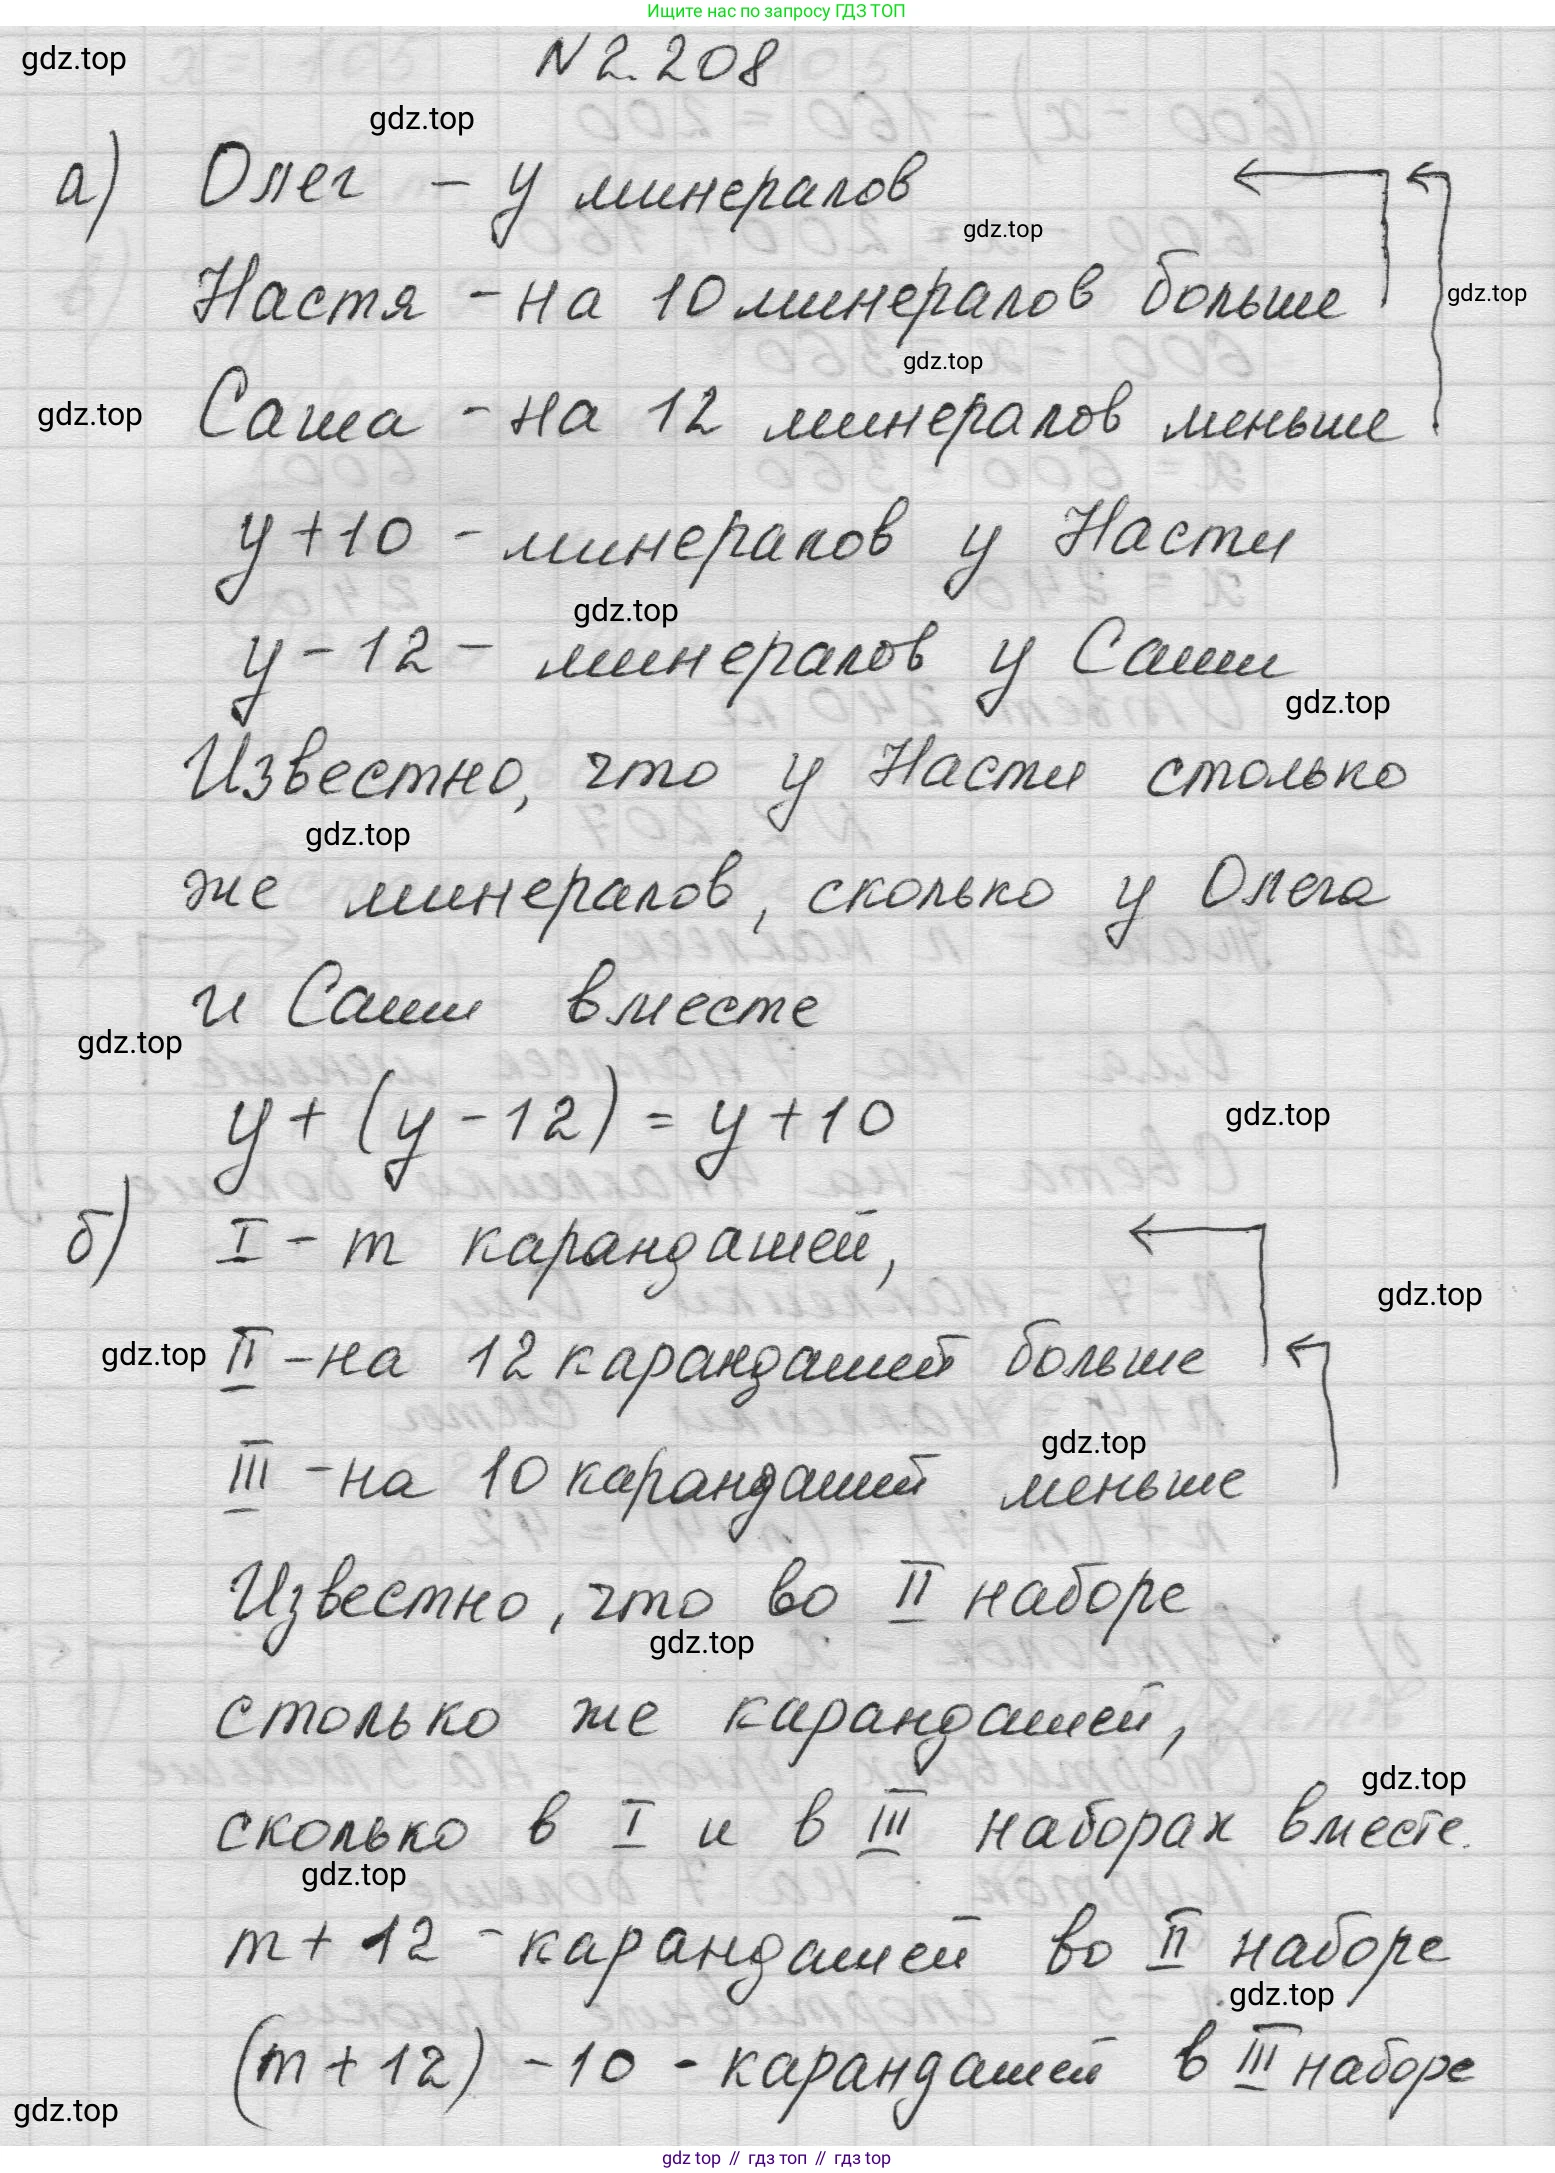 Ищите нас по запросу ГДЗ ТОП
N 2.208
gdz.top
gdz.top
а) Олег – у минералов
gdz.top
Настя – на 10 минералов больше
gdz.top
gdz.top
Саша – на 12 минералов меньше
gdz.top
у + 10 – минералов у Насти
gdz.top
у – 12 – минералов у Саши
gdz.top
Известно, что у Насти столько
gdz.top
же минералов, сколько у Олега
и Саши вместе
gdz.top
у + (у – 12) = у + 10
gdz.top
б) I – m карандашей,
gdz.top
II – на 12 карандашей больше
gdz.top
gdz.top
III – на 10 карандашей меньше
Известно, что во II наборе
gdz.top
столько же карандашей,
gdz.top
сколько в I и в III наборах вместе.
gdz.top
m + 12 – карандашей во II наборе
gdz.top
(m + 12) – 10 – карандашей в III наборе
gdz.top
gdz top // гдз топ // gdz top